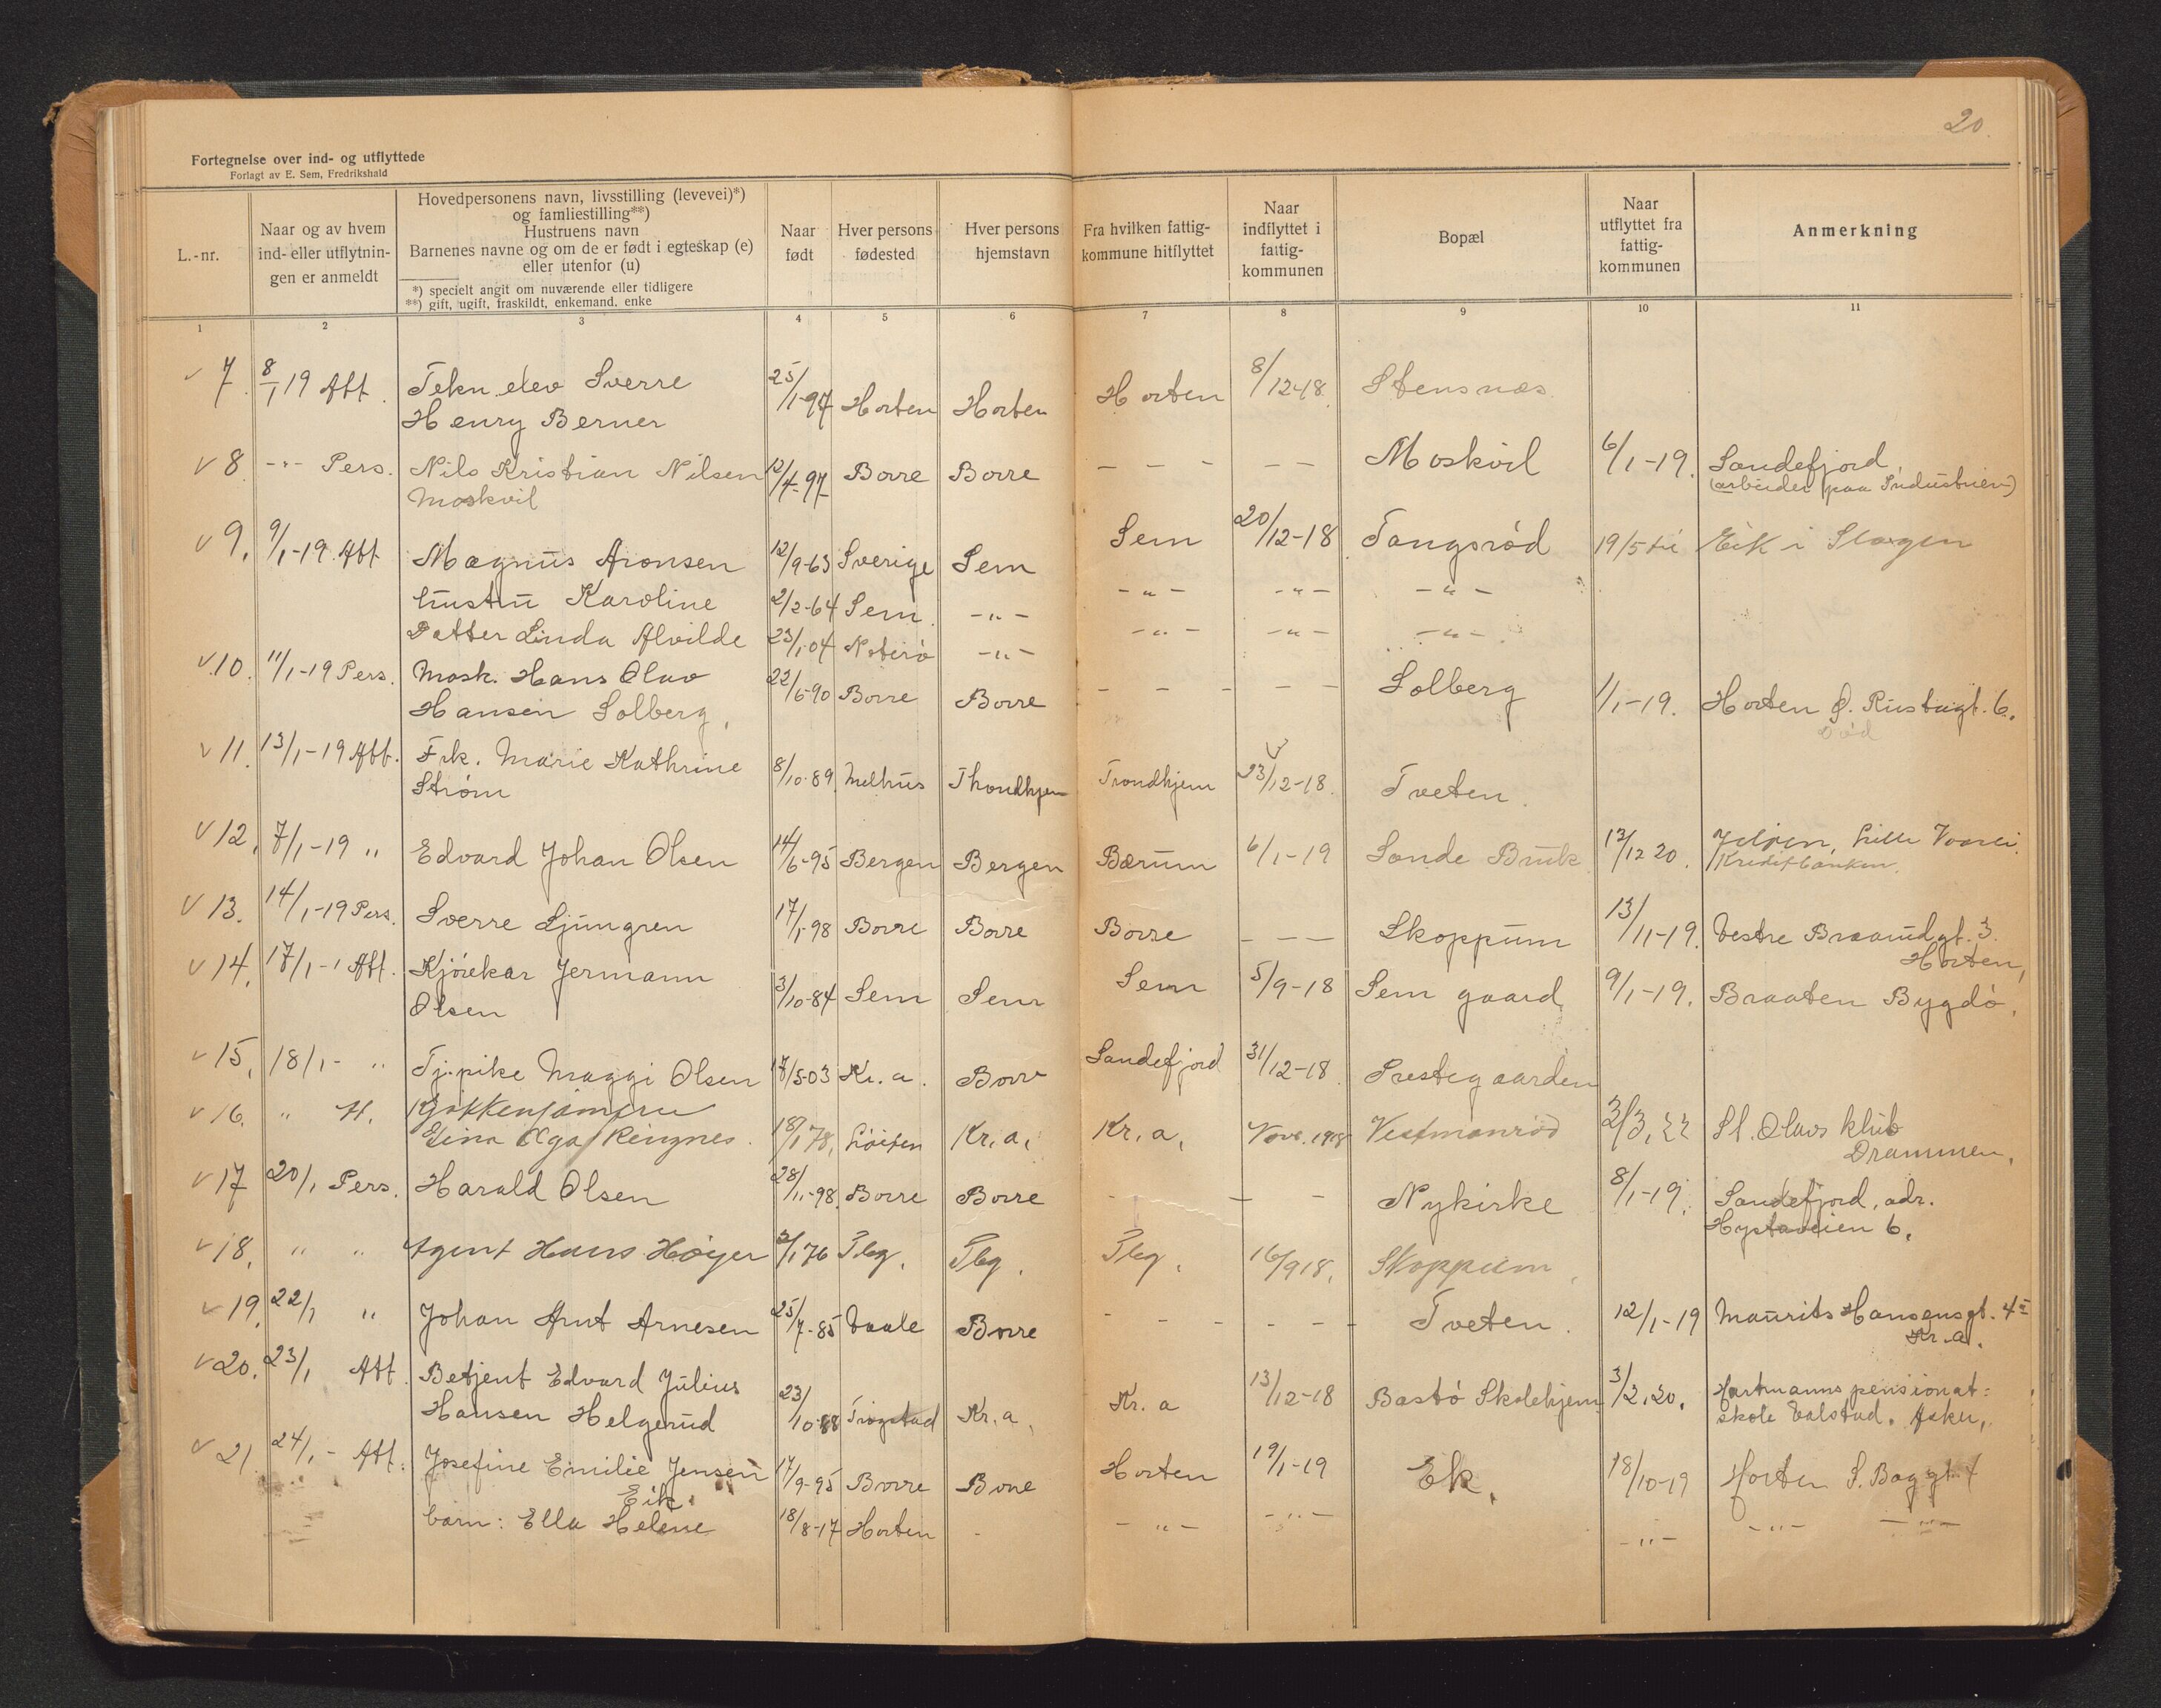 20.
Fortegnelse over ind- og utflyttede
Forlagt av E. Sem, Fredrikshald
L.-nr.
Naar og av hvem
ind- eller utflytnin-
gen er anmeldt
Hovedpersonens navn, livsstilling (levevei)*)
og famliestilling**)
Hustruens navn
Barnenes navne og om de er født i egteskap (e)
eller utenfor (u)
*) specielt angit om nuværende eller tidligere
**) gift, ugift, fraskildt, enkemand, enke
Naar
født
Hver persons
fødested
Hver persons
hjemstavn
Fra hvilken fattig-
kommune hitflyttet
Naar
indflyttet i
fattig-
kommunen
Bopæl
Naar
utflyttet fra
fattig-
kommunen
Anmerkning
1 2 3 4 5 6 7 8 9 10 11
7 8/1 19 Att. Tekn. elev Sverre 25/1-97 Horten Horten Horten 8/12-18 Stensnæs
Henry Berner
8 -"- Pers. Nils Kristian Nilsen 12/4-97 Borre Borre - - - - - Moskvil 6/1-19. Sandefjord
Moskvil (arbeider paa Industrien)
9. 9/1-19 Att Magnus Aronsen 12/9-63 Sverige Sem Sem 20/12-18 Tangsrød 19/5 Eik i Slagen
hustru Karoline 2/2-64 Sem. -"- -"- -"- -"-
Datter Linda Alvilde 23/1-04 Noterø -"- -"- -"- -"-
10. 11/1-19 Pers. Mask. Hans Olav 22/6-90 Borre Borre - - - - - Solberg 1/1-19. Horten Ø. Rustugt. 6.
Hansen Solberg,
11. 13/1-19 Att. Frk. Marie Kathrine 8/10-89. Melhus Thondhjem Trondhjem 23/12-18. Tveten.
Strøm
12. 7/1-19 " Edvard Johan Olsen 14/6-95 Bergen Bergen Bærum 6/1-19 Sande Bruk 13/12 20. Jeløen, Lille
Kreditbanken.
13. 14/1-19 Pers. Sverre Ljungren 17/1-98 Borre Borre Borre - - - Skoppum 13/11-19. Vestre Braarudgt. 3.
Horten,
14. 17/1-1 Att. Kjørekar Jermann 3/10-84 Sem Sem Sem 5/9-18 Sem gaard 9/1-19. Braaten Bygdø.
Olsen
15. 18/1- " Tj.pike Maggi Olsen 17/5-03 Kr. a. Borre Sandefjord 31/12-18. Prestegaarden
16. " H. Kjøkkenjomfru
Olga Ringnes. 18/1 78, Løiten Kr. a. Kr. a. Nov. 1918 Vestmanrød 2/3. 22 St. Olavs klub
Drammen.
17 20/1 Pers. Harald Olsen 28/11-98. Borre Borre - - - Nykirke 8/1-19. Sandefjord, adr.
Hystaveien 6.
18. " " Agent Hans Høyer 2/1 76 Tbg. Tbg. Tbg. 16/9 18. Skoppum,
19. 22/1 " Johan Arnt Arnesen 25/7-85 Vaale Borre - - - - - Tveten. 12/1-19 Maurits Hansensgt. 4
Kr. a.
20. 23/1 Att. Betjent Edvard Julius 23/10-88 Trøgstad Kr. a. Kr. a 13/12-18 Bastø Skolehjem 3/2.20. Hartmanns pensionat-
Hansen Helgerud skole Valstad. Asker.
21. 24/1- Att. Josefine Emilie Jensen 17/9-95 Borre Borre Horten 19/1-19 Ek. 18/10-19 Horten S. Baggt.
Eik.
barn: Ella Helene 18/8-17 Horten - -"- -"- -"- -"- -"-